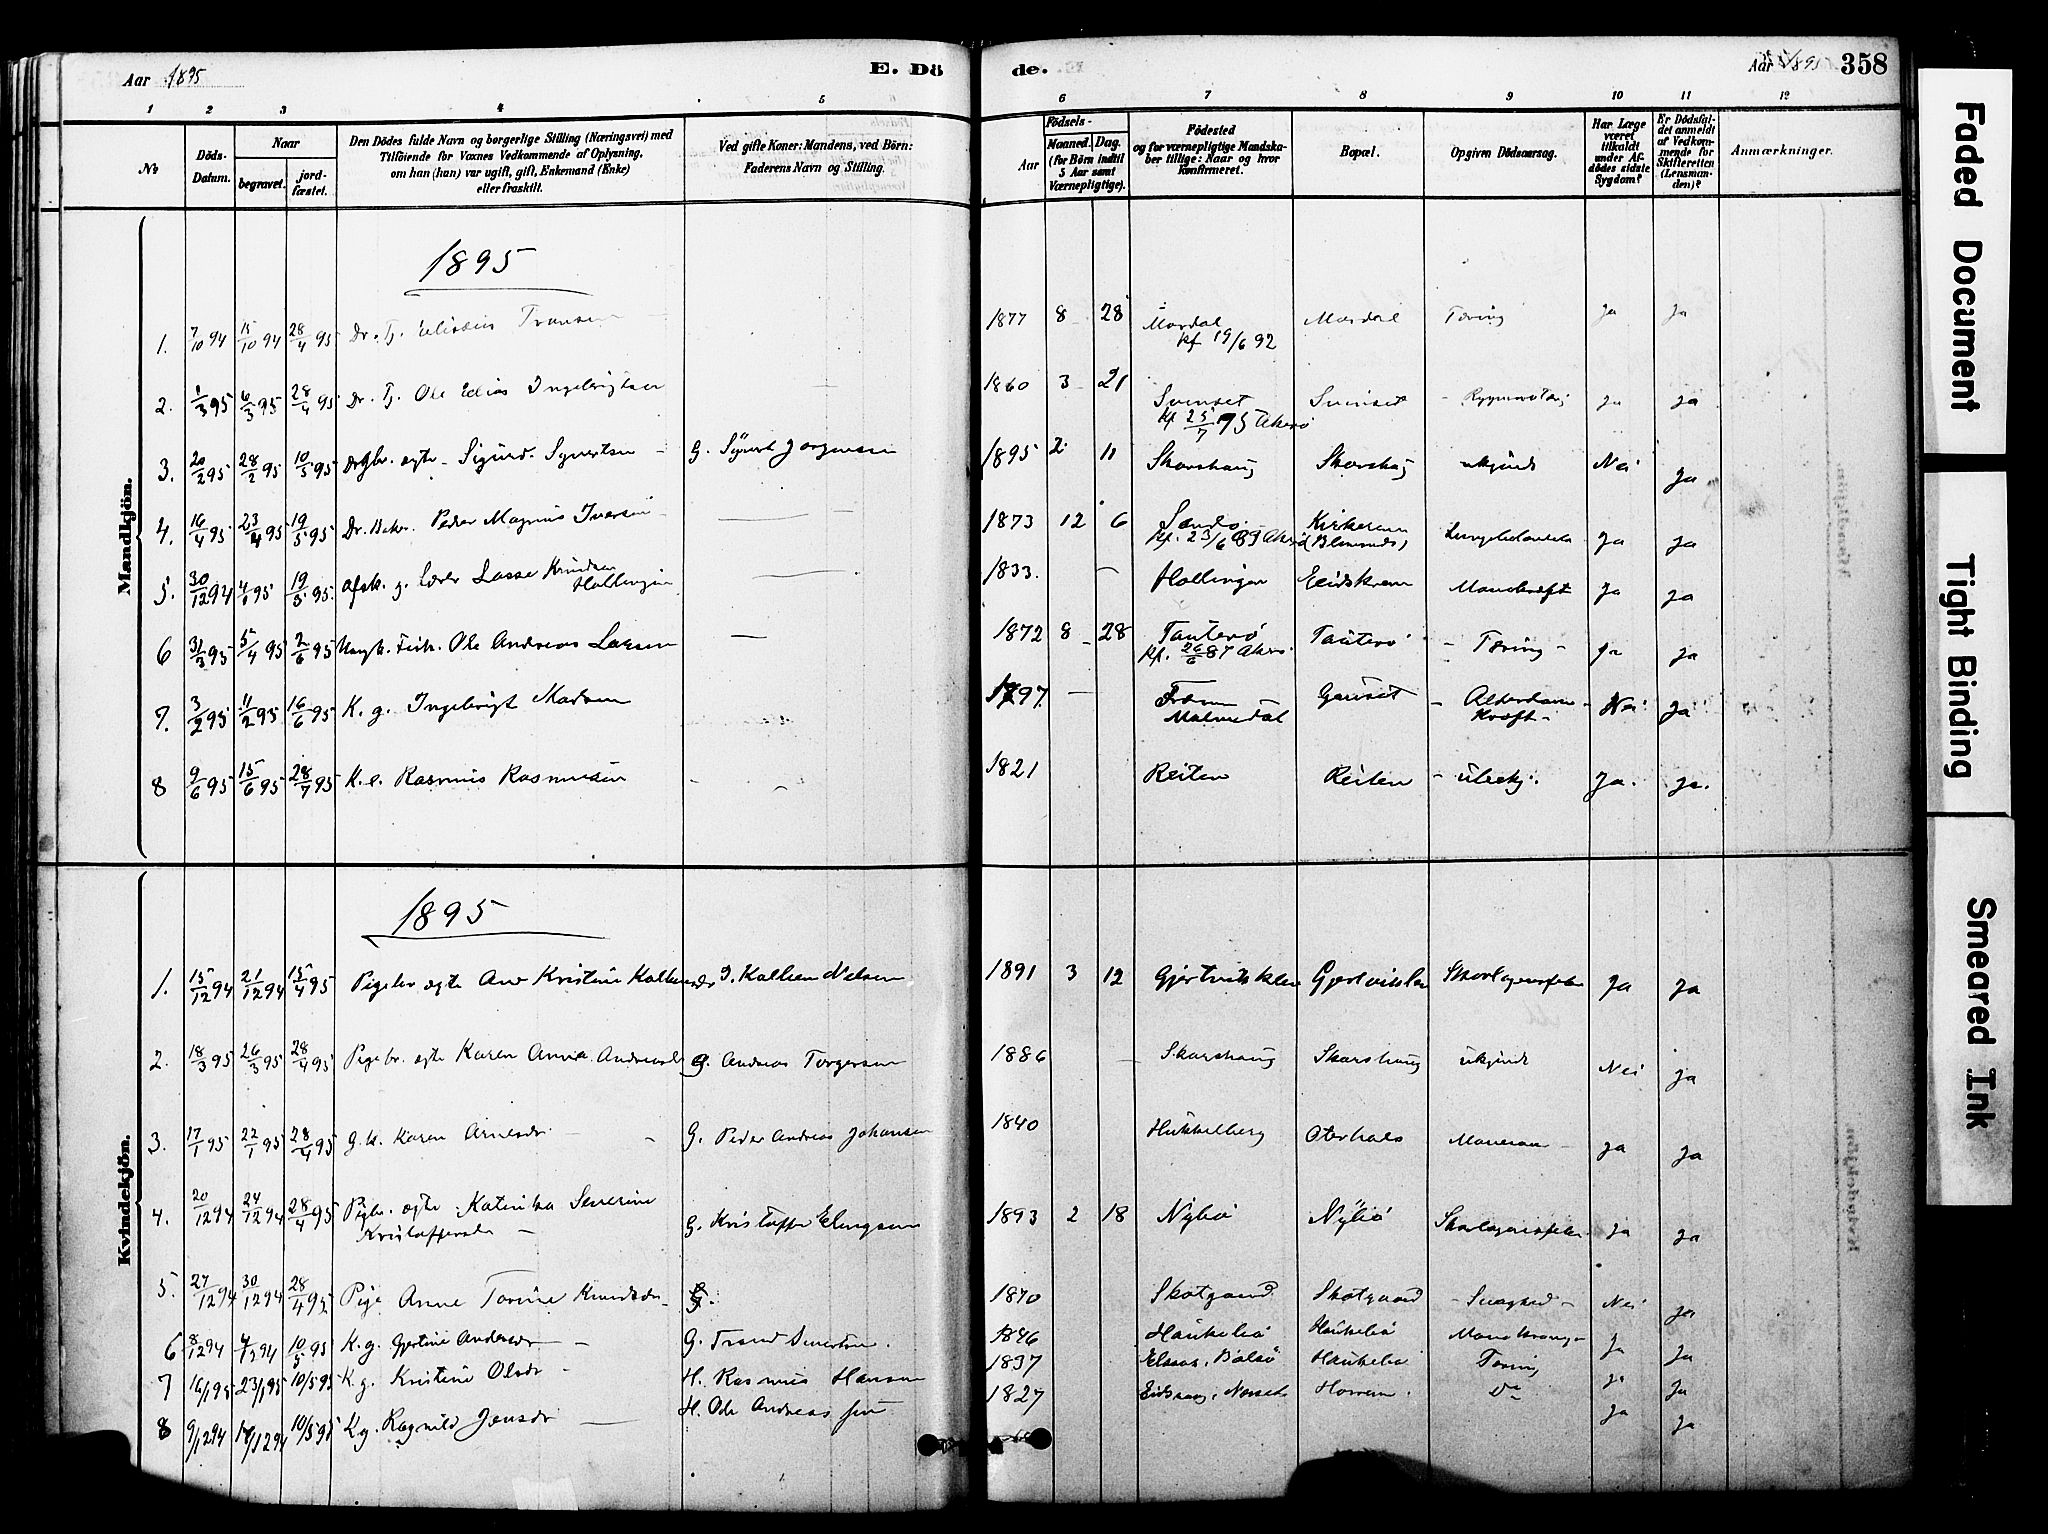 Aar 1895
E. Dö
de.
Aar 1895
358
1 2 3 4 5 6 7 8 9 10 11 12
No
Döds-Datum.
Naar
begravet.
jord-fæstet.
Den Dödes fulde Navn og borgerlige Stilling (Næringsvei) med
Tilföiende for Voxnes Vedkommende af Oplysning,
om han (hun) var ugift, gift, Enkemand (Enke)
eller fraskilt.
Ved gifte Koner: Mandens, ved Börn:
Faderens Navn og Stilling.
Födsels-
Aar
Maaned. Dag.
(for Börn indtil
5 Aar samt
Værnepligtige).
Födested
og for værnepligtige Mandska-
ber tillige: Naar og hvor
konfirmeret.
Bopæl.
Opgiven Dödsaarsag.
Har Læge
været
tilkaldt
under Af-
dödes sidste
Sygdom?
Er Dödsfal-
det anmeldt
af Vedkom-
mende for
Skifteretten
(Lensman-
den)?
Anmærkninger.
Mandkjön.
1895
1. 7/10 94 15/10 94 28/4 95 Dr. Tj. Fransen 1877 8 28 Mordal Kf 19/6 92 Mordal Tæring Ja Ja
2. 1/3 95 6/3 95 28/4 95 Dr. Tj. Ole Elias Ingebrigtsen 1860 3 21 Svinset Kf. 25/7 75 Akerø Svinset Ja Ja
3. 20/2 95 28/2 95 10/5 95 Drgbr. ægte Sigurd Syvertsen G. Syvert Jørgensen 1895 2 11 Skorshaug Skorshaug ukjendt Nei Ja
4. 16/4 95 23/4 95 19/5 95 Dr. Peder Magnus Iversen 1873 12 6 Sandø Kf. 23/6 89 Akerø Kirkerem Ja Ja
5. 30/12 94 4/1 95 19/5 95 afsk. g. Lærer Lasse Knudsen Hollingen 1833. Hollingen Eidskrem Ja Ja
6 31/3 95 5/4 95 2/6 95 Ungk. Fisk. Ole Andreas Larsen 1872 8 28 Tauterø Kf. 26/6 87 Akerø Tauterø Tæring Ja Ja
7. 3/2 95 11/2 95 16/6 95 K. g. Ingebrigt Madsen 1797 Fræn Malmedal Gauset Alderdoms Kræft Nei Ja
8 9/6 95 15/6 95 28/7 95 K. e. Rasmus Rasmussen 1821 Reiten Reiten ubekj. Ja. Ja.
Kvindekjön.
1895
1. 15/12 94 21/12 94 15/4 95 Pigebr ægte Ane Kristine G. Kolbein Nelsen 1891 3 12 Skarlagensfeber Ja Ja
2. 18/3 95 26/3 95 28/4 95 Pigebr. ægte Karen Anna Andreasdr G. Andreas Torgersen 1886 Skorshaug Skorshaug ukjendt Nei Ja
3. 17/1 95 22/1 95 28/4 95 G. k. Karen Arnesdr G. Peder Andreas Johansen 1840 Hukkelberg Oterhals Ja Ja
4. 20/12 94 24/12 94 28/4 95 Pigbr. ægte Katrika Severine Kristoffersdr G. Kristoffer Elingsen 1893 2 18 Nybø Nybø Skarlagensfeber Ja Ja
5. 27/12 94 30/12 94 28/4 95 Pige Anne Tomine Knudsdr G. 1870 Skotgaard Skotgaard Svaghed Nei Ja
6 8/12 94 10/5 95 K. g. Gjertine Andersdr G. Trond Sivertsen 1846 Haukebø Haukebø Ja Ja
7 16/1 95 23/1 95 10/5 95 K. g. Kristine Olsdr H. Rasmus Hansen 1837 Bolsø Haukebø Tæring Ja Ja
8 9/12 94 10/5 95 K g. Ragnild Jensdr H. Ole Andreas 1827 Horrem Do Ja Ja
Faded Document
Tight Binding
Smeared Ink